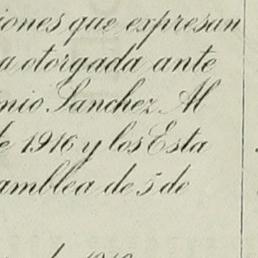 iones que expresan
a otorgada ante
nio Sanchez Al
te 1916 y los Esta
amblea de 5 de